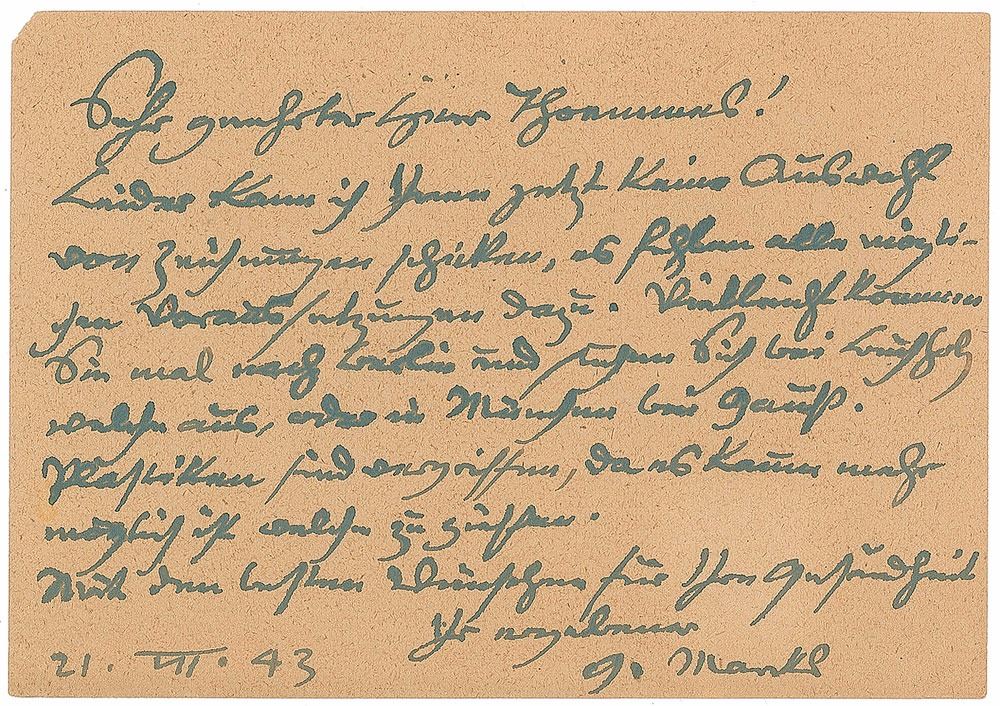 Sehr geehrter Herr Thoemmes!
Leider kann ich Ihnen jetzt keine Auswahl
von Zeichnungen schicken, es fehlen alle mögli-
chen Voraussetzungen dazu. Vielleicht kommen
Sie mal nach Berlin und suchen Sich bei Buchholz
welche aus, oder in München bei Gauß.
Plastiken sind vergriffen, da es kaum mehr
möglich ist welche zu
Mit den besten Wünschen für Ihre Gesundheit
Ihr ergebener
G. Marcks
21. VII. 43